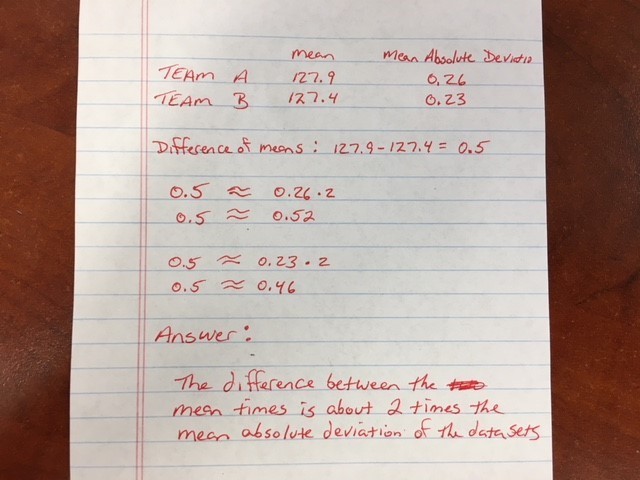 mean mean Absolute Deviatio
TEAM A 127.9 0.26
TEAM B 127.4 0.23
Difference of means: 127.9-127.4 = 0.5
0.5 ≈ 0.26·2
0.5 ≈ 0.52
0.5 ≈ 0.23·2
0.5 ≈ 0.46
Answer:
The difference between the
mean times is about 2 times the
mean absolute deviation of the data sets